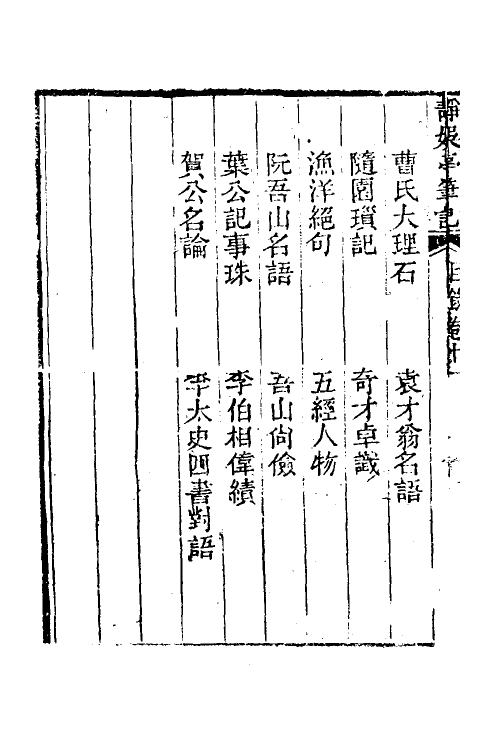 靜娛亭筆記 目錄卷十
曹氏大理石 袁才翁名語
隨園瑣記 奇才卓識
漁洋絕句 五經人物
阮吾山名語 吾山尙儉
葉公記事珠 李伯相偉績
賀公名論 太史四書對語